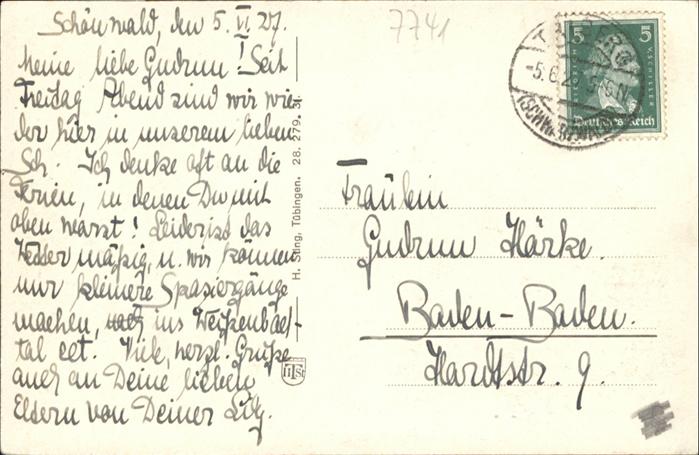 Schönwald, den 5. VI. 27.
Meine liebe Gudrun! Seit
Freitag Abend sind wir wie-
der hier in unserem lieben
Sch. Ich denke oft an die
Ferien, in denen Du mit
oben warst! Leider ist das
Wetter mäßig, u. wir können
nur kleinere Spaziergänge
machen, ins Weißenbach-
tal ect. Viele, herzl. Grüße
auch an Deine lieben
Eltern von Deiner Lily.
7741
H. Sting, Tübingen. 28. 279. St.
HSt
TRIBERG
-5.6.2
(SCHWARZWALD)
5 5
FRIEDRICH V. SCHILLER
Deutsches Reich
Fräulein
Gudrun Härke.
Baden-Baden.
Hardtstr. 9.